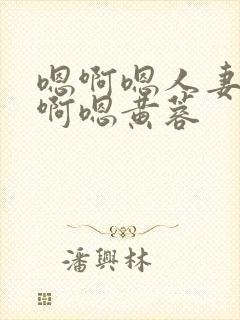 嗯啊嗯人妻
啊嗯黄蓉
潘興林